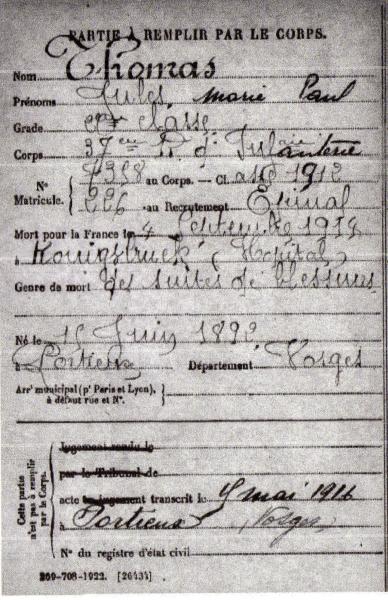 PARTIE À REMPLIR PAR LE CORPS.
Nom Thomas
Prénoms Jules marie Paul
Grade 2e classe
Corps 37em R. d' Infanterie
N° Matricule. { 7328 au Corps. — Cl. asse 1912
226 au Recrutement Epinal
Mort pour la France le 4 Septembre 1914
à Konigsbruck (Hopital)
Genre de mort des suites de blessures
Né le 15 Juin 1892
à Portieux Département Vosges
Arrt municipal (pr Paris et Lyon),
à défaut rue et N°.
Cette partie n'est pas à remplir par le Corps.
Jugement rendu le
par le Tribunal de
acte ou jugement transcrit le 4 mai 1916
à Portieux (Vosges)
N° du registre d'état civil
269-708-1922. [26434]